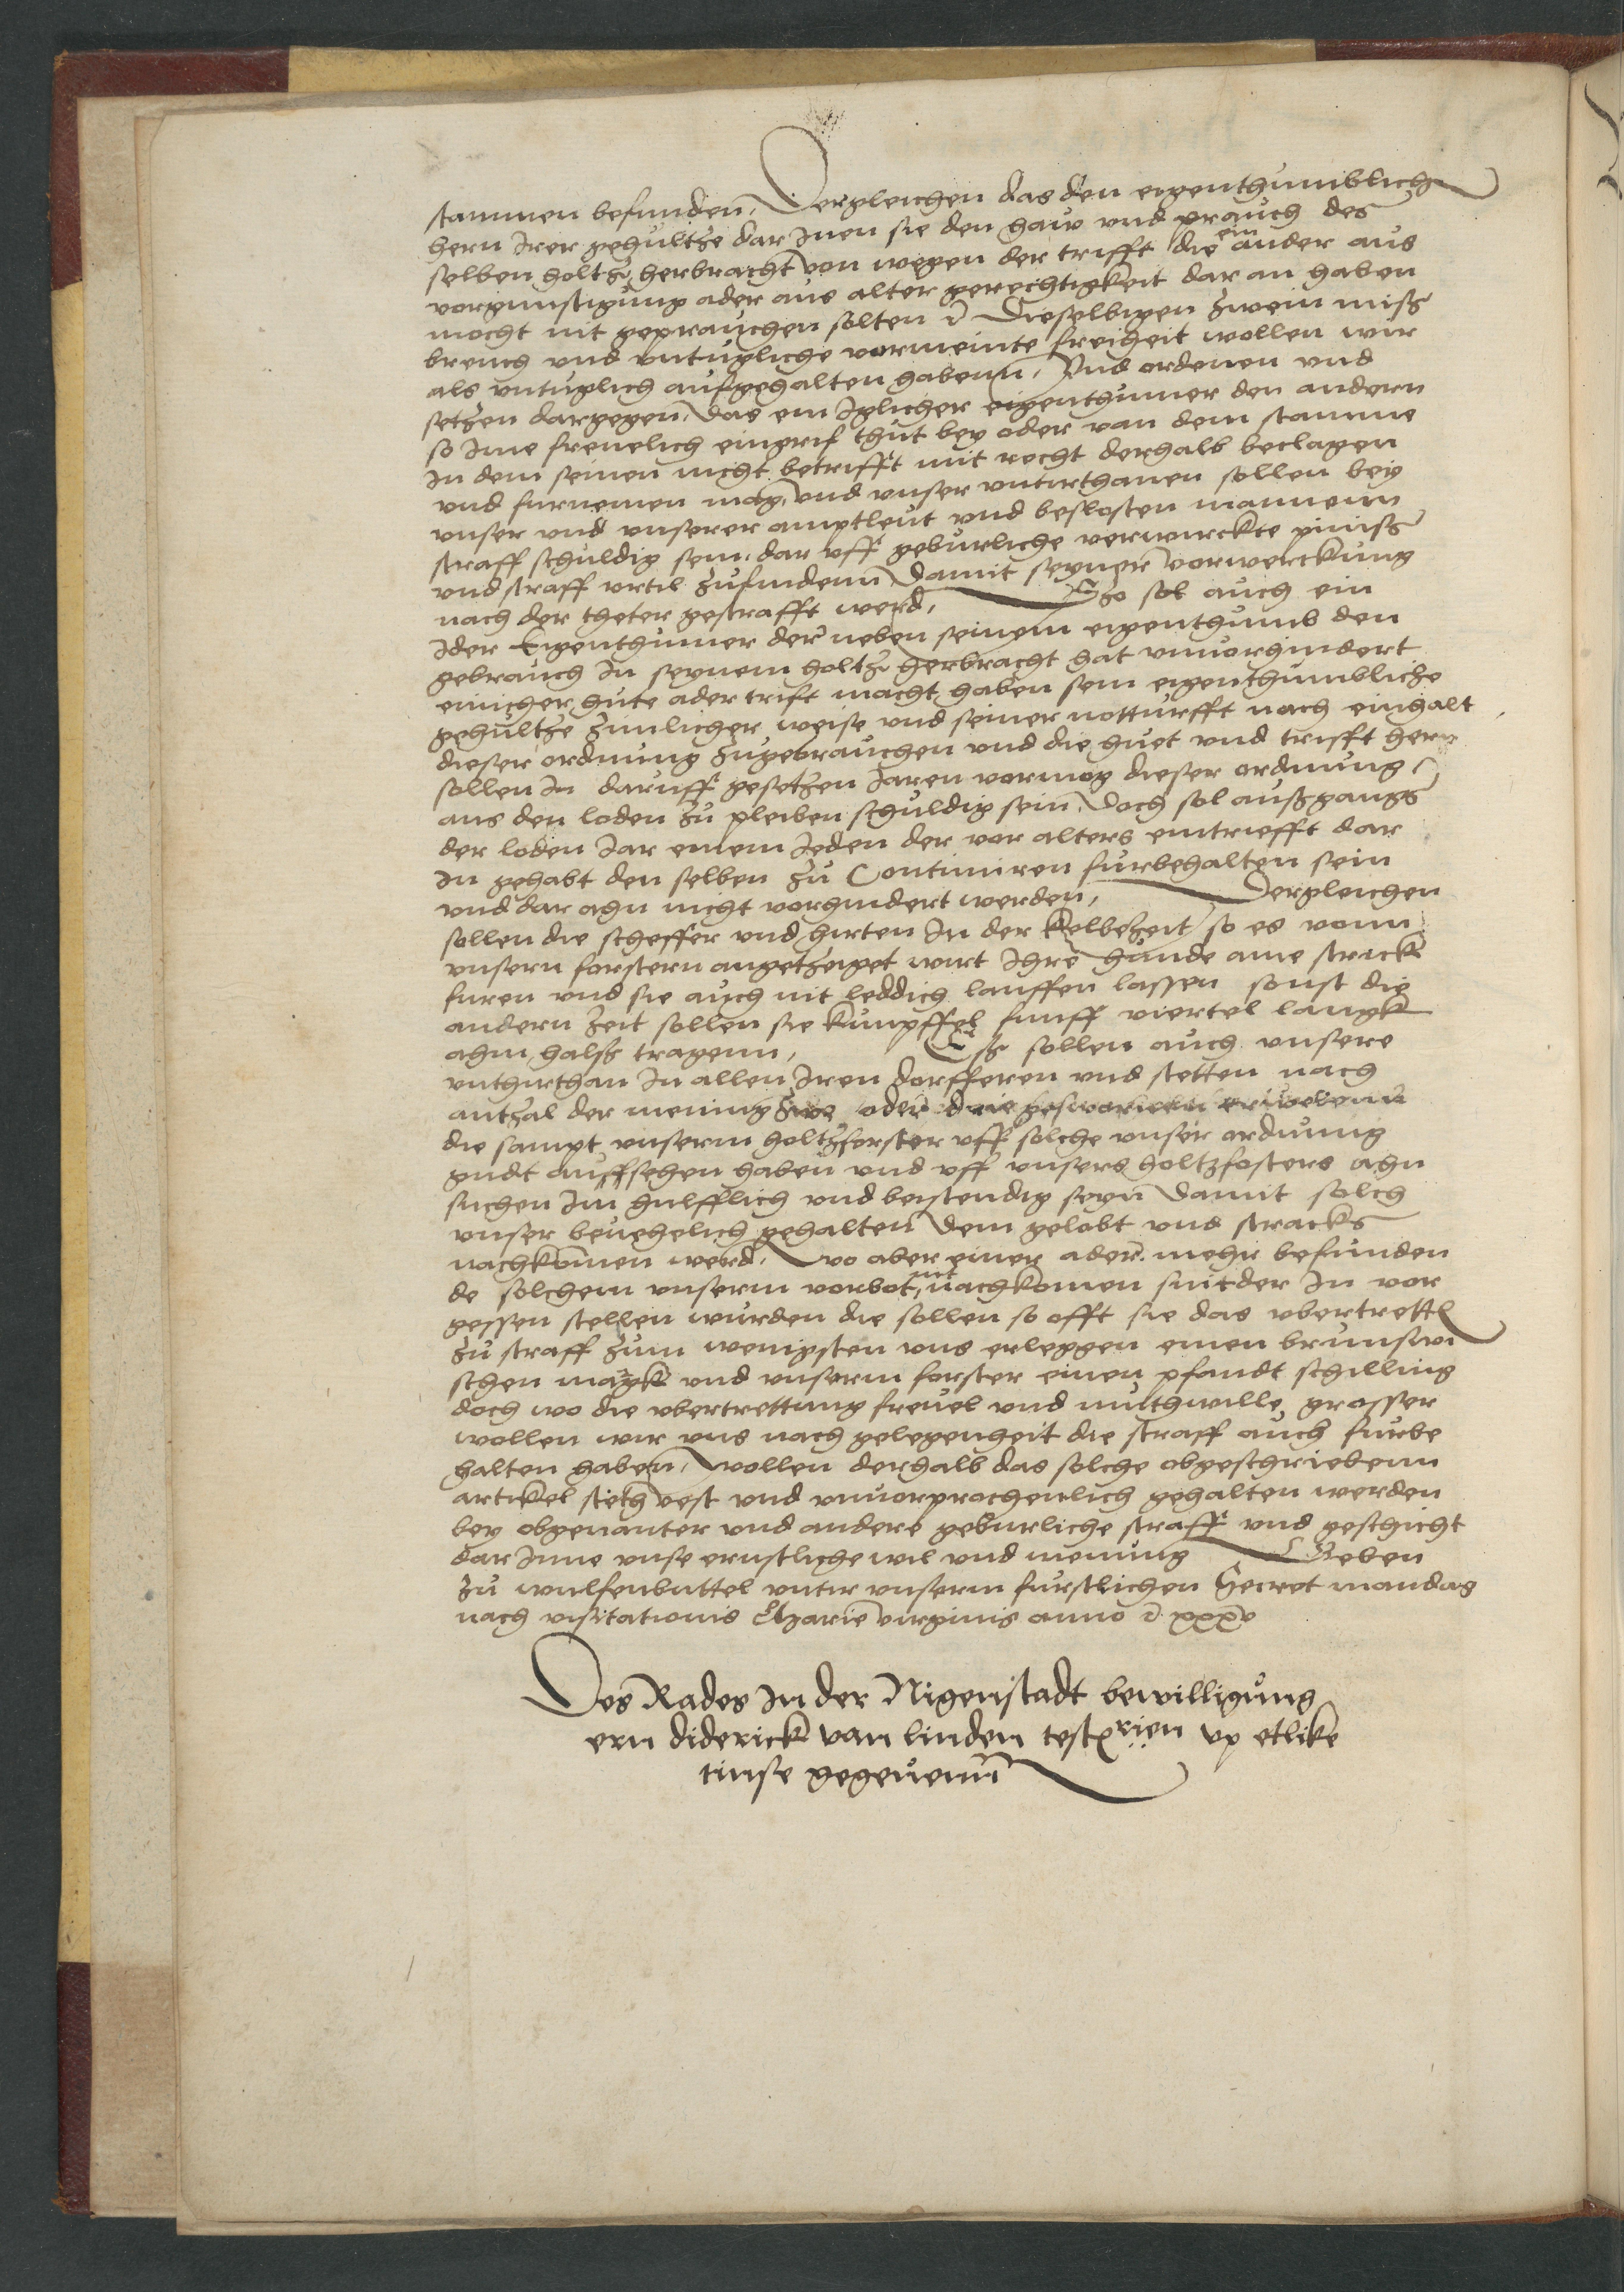 stammen befunden, Dergleichen das den eigenthumblich
hern Irer gehultze dar Inen sie den hauw vnd prauch des
selben holtz herbracht von wegen der trifft die ein ander aus
vorgunstigung ader aus alter gerechtigkeit dar an haben
mocht nit geprauchen solten Dieselbigen zwein miß
breuch vnd vntugliche vormeinte freiheit wollen wir
als vntuglich aufgehalten habenn, Vnd ordenen vnd
setzen dargegen, das ein Iglicher eigenthumer den andern
so Ime freuelich eingrif thut bey oder van dem stamme
In dem seinen nicht betrifft mit recht derhalb beclagen
vnd furnemen mag, vnd vnser vntirthanen sollen bey
vnser vnd vnserer amptleut vnd beslosten mannenn
straff schuldig sein, dar vff geburliche verwirckte
vnd straff vrtil zufindenn Damit seyner vorwerckung
nach der theter gestrafft werd, Szo sol auch ein
Ider Eigenthumer der neben seinem eigenthumb den
gebrauch In seynem holtz herbracht hat vnuorhindert
einicher hute ader trift macht haben sein eigenthumbliche
gehultze zimlicher weise vnd seiner notturfft nach einhalt
dieser ordnung zugebrauchen vnd die huet vnd trifft hern
sollen In daruff gesetzen Jaren vormog dieser ordnung
aus den loden zu pleiben schuldig sein, Doch sol außgangs
der loden Jar einem Jeden der vor alters eintriefft dar
In gehabt den selben zu Continuiren furbehalten sein
vnd dar ahn nicht vorhindert werden, Dergleichen
sollen die scheffer vnd hirten In der kelbezeit so es vonn
vnsern forstern angetzeiget wirt Ihre hunde ane strick
furen vnd sie auch nit leddich lauffen lassen sonst die
andern zeit sollen sie kunpffel funff viertel langk
ahm halß tragenn, Eß sollen auch vnsere
vnthirthan In allen Iren dorfferen vnd stetten nach
antzal der mening zwe oder drie gesworiren erwelenn
die sampt vnserm holtzforster vff solche vnser ordnung
gudt auffsehen haben vnd vff vnsers holtzfosters ahn
suchen Im hulfflich vnd beistendig seyn Damit solch
vnser beuehelich gehalten dem gelobt vnd stracks
nachkomen werd, wo aber einer ader mehr befunden
de solchem vnserm vorbot nit nachkomen sunder In vor
gessen stellen wurden die sollen so offt sie das vbertrett
zu straff zum wenigsten vns erleggen einen brunswi
schen magk vnd vnserm forster einen pfandt schilling
doch wo die vbertrettung freuel vnd muthwille grosser
wollen wir vns nach gelegenheit die straff auch furbe
halten haben, wollen derhalb das solche obgeschriebenn
artikel steth vest vnd vnuorprochenlich gehalten werden
bey obgenanter vnd andere geburliche straff vnd geschicht
dar Inne vnse ernstliche wil vnd menung Geben
zu wulfenbuttel vntir vnserm furstlichen Secret mandag
nach visitationis Marie virginis anno xxxv
Des Rades In der Nigenstadt bewilligung
ern diderick van linden up etlike
tinse gegeuenn